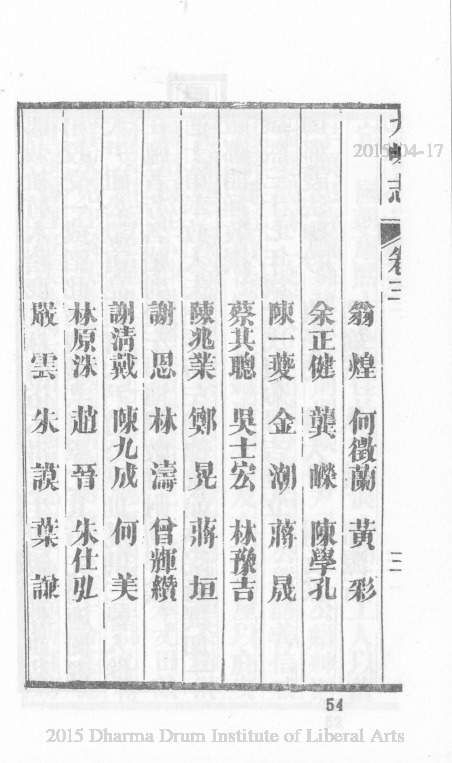 志
卷三
三
翁煌 何徵蘭 黃彩
余正健 龔嶸 陳學孔
陳一夔 金潮 蔣晟
蔡其聰 吳士宏 林豫吉
陳兆業 鄭晃 蔣垣
謝恩 林濤 曾輝纘
謝清戴 陳九成 何美
林原洙 趙晉 朱仕弘
嚴雲 朱謨 葉謙
54
2015-04-17
2015 Dharma Drum Institute of Liberal Arts